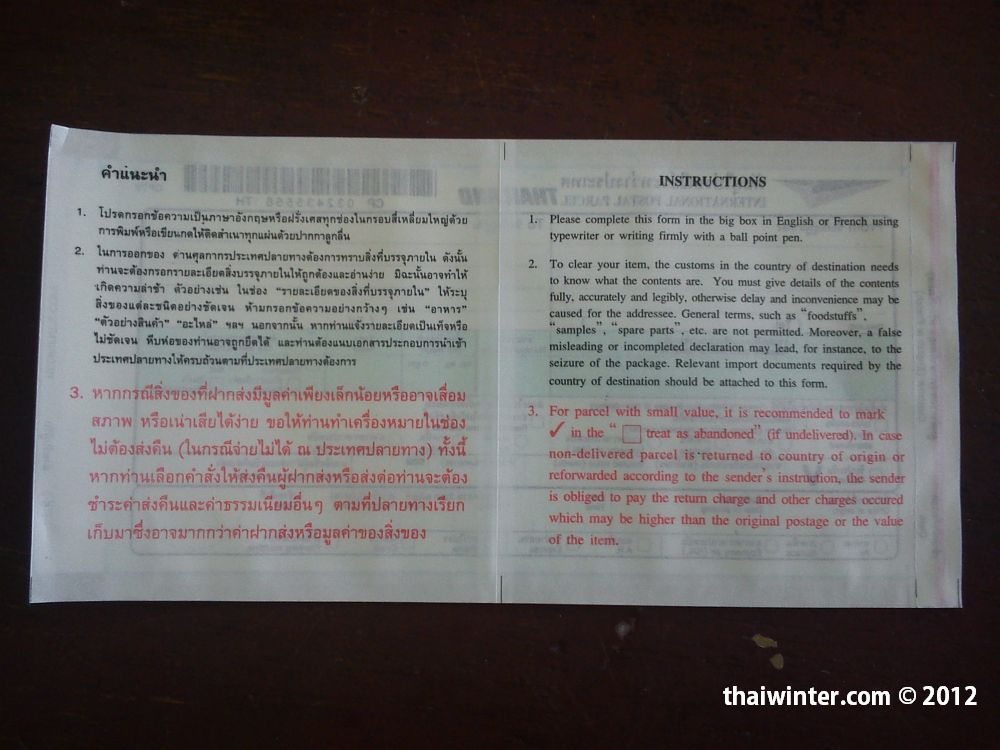 คำแนะนำ
1. โปรดกรอกข้อความเป็นภาษาอังกฤษหรือฝรั่งเศสทุกช่องในกรอบสี่เหลี่ยมใหญ่ด้วย
การพิมพ์หรือเขียนกดให้ติดสำเนาทุกแผ่นด้วยปากกาลูกลื่น
2. ในการออกของ ด่านศุลกากรประเทศปลายทางต้องการทราบสิ่งที่บรรจุภายใน ดังนั้น
ท่านจะต้องกรอกรายละเอียดสิ่งบรรจุภายในให้ถูกต้องและอ่านง่าย มิฉะนั้นอาจทำให้
เกิดความล่าช้า ตัวอย่างเช่น ในช่อง “รายละเอียดของสิ่งที่บรรจุภายใน” ให้ระบุ
สิ่งของแต่ละชนิดอย่างชัดเจน ห้ามกรอกข้อความอย่างกว้างๆ เช่น “อาหาร”
“ตัวอย่างสินค้า” “อะไหล่” ฯลฯ นอกจากนั้น หากท่านแจ้งรายละเอียดเป็นเท็จหรือ
ไม่ชัดเจน หีบห่อของท่านอาจถูกยึดได้ และท่านต้องแนบเอกสารประกอบการนำเข้า
ประเทศปลายทางให้ครบถ้วนตามที่ประเทศปลายทางต้องการ
3. หากกรณีสิ่งของที่ฝากส่งมีมูลค่าเพียงเล็กน้อยหรืออาจเสื่อม
สภาพ หรือเน่าเสียได้ง่าย ขอให้ท่านทำเครื่องหมายในช่อง
ไม่ต้องส่งคืน (ในกรณีจ่ายไม่ได้ ณ ประเทศปลายทาง) ทั้งนี้
หากท่านเลือกคำสั่งให้ส่งคืนผู้ฝากส่งหรือส่งต่อท่านจะต้อง
ชำระค่าส่งคืนและค่าธรรมเนียมอื่นๆ ตามที่ปลายทางเรียก
เก็บมาซึ่งอาจมากกว่าค่าฝากส่งหรือมูลค่าของสิ่งของ
INSTRUCTIONS
1. Please complete this form in the big box in English or French using
typewriter or writing firmly with a ball point pen.
2. To clear your item, the customs in the country of destination needs
to know what the contents are. You must give details of the contents
fully, accurately and legibly, otherwise delay and inconvenience may be
caused for the addressee. General terms, such as “foodstuffs”,
“samples”, “spare parts”, etc. are not permitted. Moreover, a false
misleading or incompleted declaration may lead, for instance, to the
seizure of the package. Relevant import documents required by the
country of destination should be attached to this form.
3. For parcel with small value, it is recommended to mark
✓ in the “ ☐ treat as abandoned” (if undelivered). In case
non-delivered parcel is returned to country of origin or
reforwarded according to the sender's instruction, the sender
is obliged to pay the return charge and other charges occured
which may be higher than the original postage or the value
of the item.
thaiwinter.com © 2012